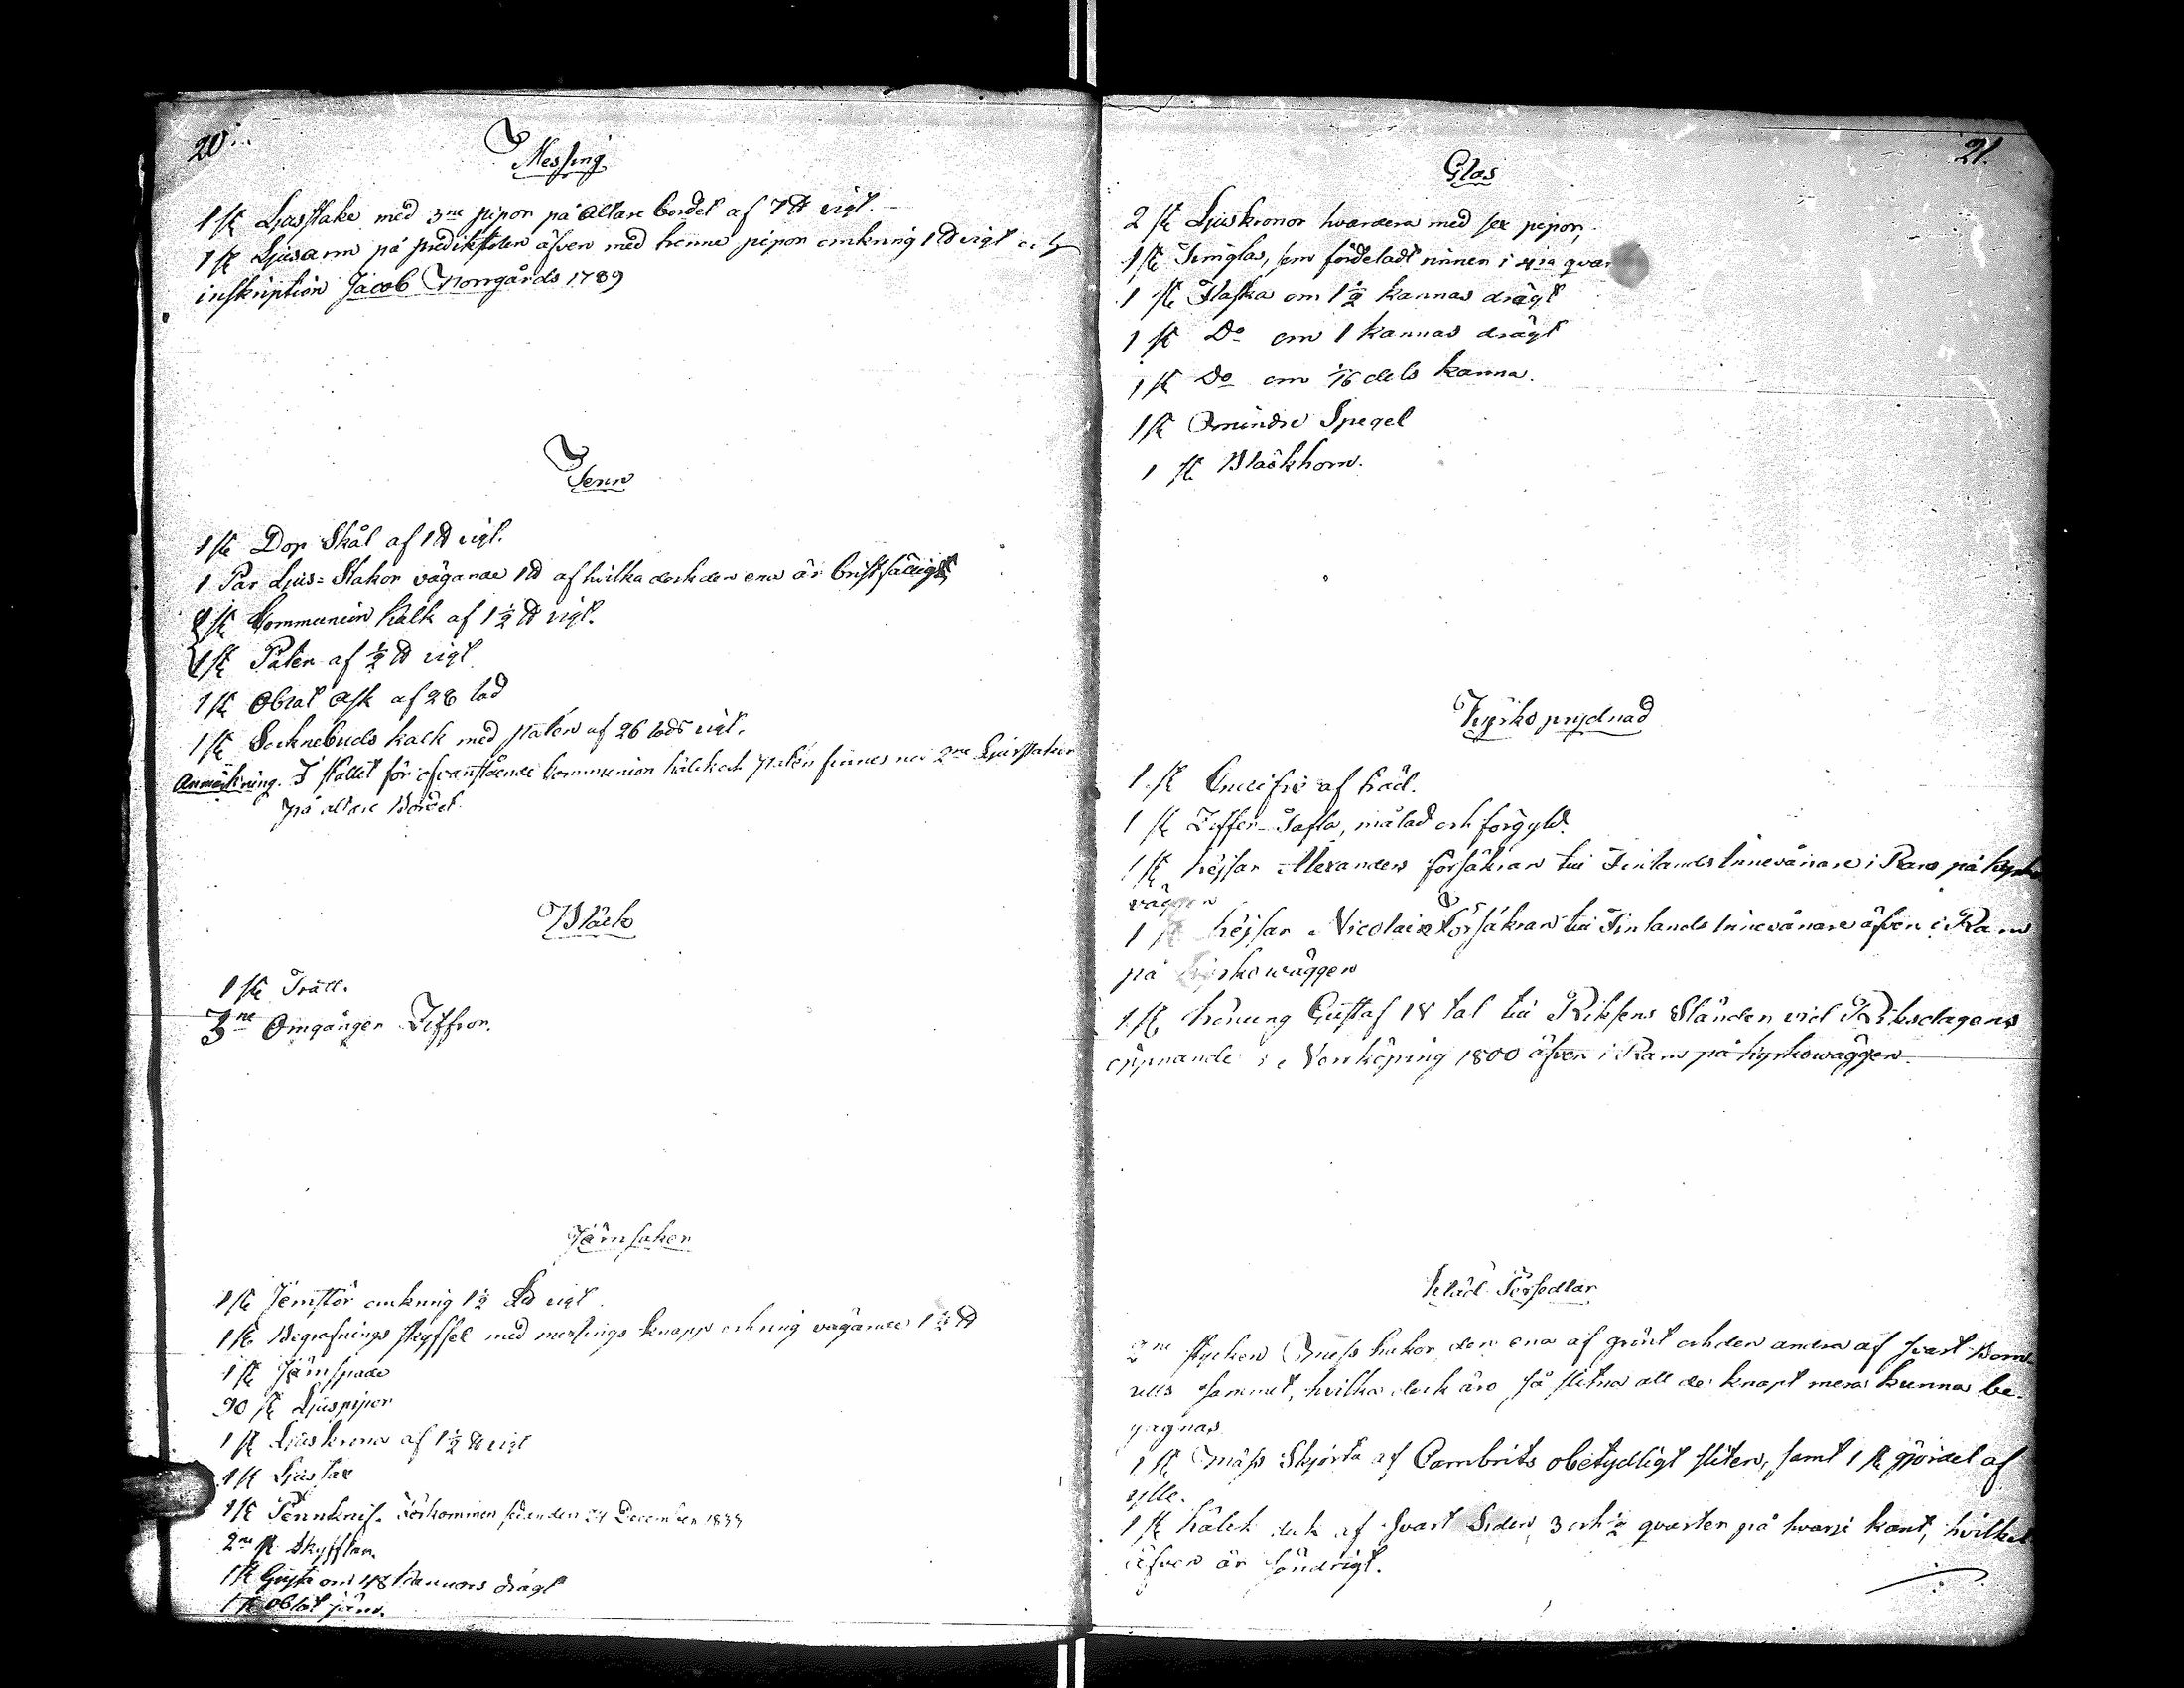 20.
Messing
1 st Ljusstake med 3ne pipor på Altare bordet af 7 ℔ vigt.
1 st Ljusarm på predikstolen äfven med trenne pipor omkring 1 ℔ vigt och
inskription Jacob Norrgårds 1789
Tenn
1 st Dop Skål af 1 ℔ vigt.
1 Par Ljus=Stakor vägande 1 ℔ af hvilka dock den ena är bristfällig
1 st Communion kalk af 1 1/2 ℔ vigt.
1 st Paten af 1/2 ℔ vigt
1 st Oblat Ask af 28 lod
1 st Socknebuds kalk med paten af 26 lods vigt.
Anmärkning. I stället för ofvanstående Communion kalck och paten finnes nu 2ne Ljusstakar
på altare Bordet
Bläck
1 st Tratt.
3ne Omgångar Ziffror.
Järnsaker
1 st Jernstör omkring 1 1/2 L℔ vigt
1 st Begrafnings skyffel med messings knapp och ring vägande 1 1/2 ℔
1 st Järnspade
90 st Ljuspipor
1 st Ljuskrona af 1 1/2 ℔ vigt
1 st Ljussax
1 st Pennknif. Förkommen sedan den 24 December
2ne st Skyfflar.
1 st Gryta om 48 kannors drägt
1 st Oblat järn.
21.
Glas
2 st Ljuskronor hvardera med sex pipor,
1 st Timglas, som fördeladt rinner i 4ra
1 st Flaska om 1 1/2 kannas drägt
1 st Do om 1 kannas drägt
1 st Do om 1/16 dels kanna.
1 st mindre Spegel
1 st Bläckhorn.
Kyrko prydnad
1 st Crucifix af träd.
1 st Ziffer-Tafla, målad och förgyld.
1 st kejsar Alexanders försäkran till Finlands Innevånare i Ram på kyrko
väggen
1 st kejsar Nicolai försäkran till Finlands Innevånare äfven i Ram
på kyrkowäggen
1 st konung Gustaf tal till Riksens Ständer vid Riksdagens
öppnande i Norrköping 1800 äfven i Ram på kyrkowäggen.
Kläd Persedlar
2ne stycken Mess hakor, den ena af grönt och den andra af svart Bom-
ulls sammet, hvilka dock äro så slitna att de knapt mera kunna be-
gagnas
1 st Mäss Skjorta af Cambrits obetydligt sliten, samt 1 st gjördel af
ylle.
1 st kalck duk af svart Siden, 3 och 1/2 qvarter på hvarje kant, hvilket
äfven är söndrigt.